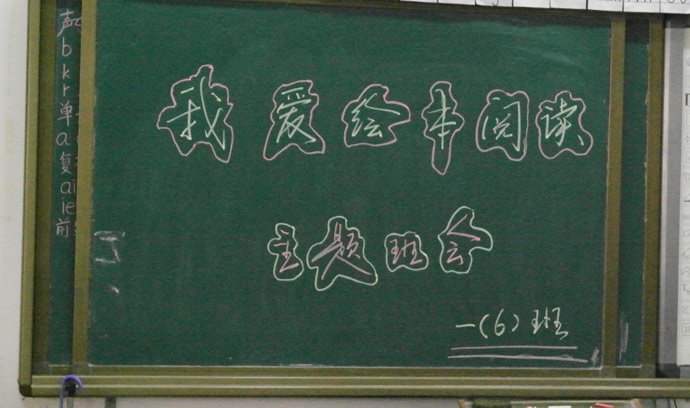 我爱绘本阅读
主题班会
一(6)班
声
b
k
r
单
a
复
ai
ie
前